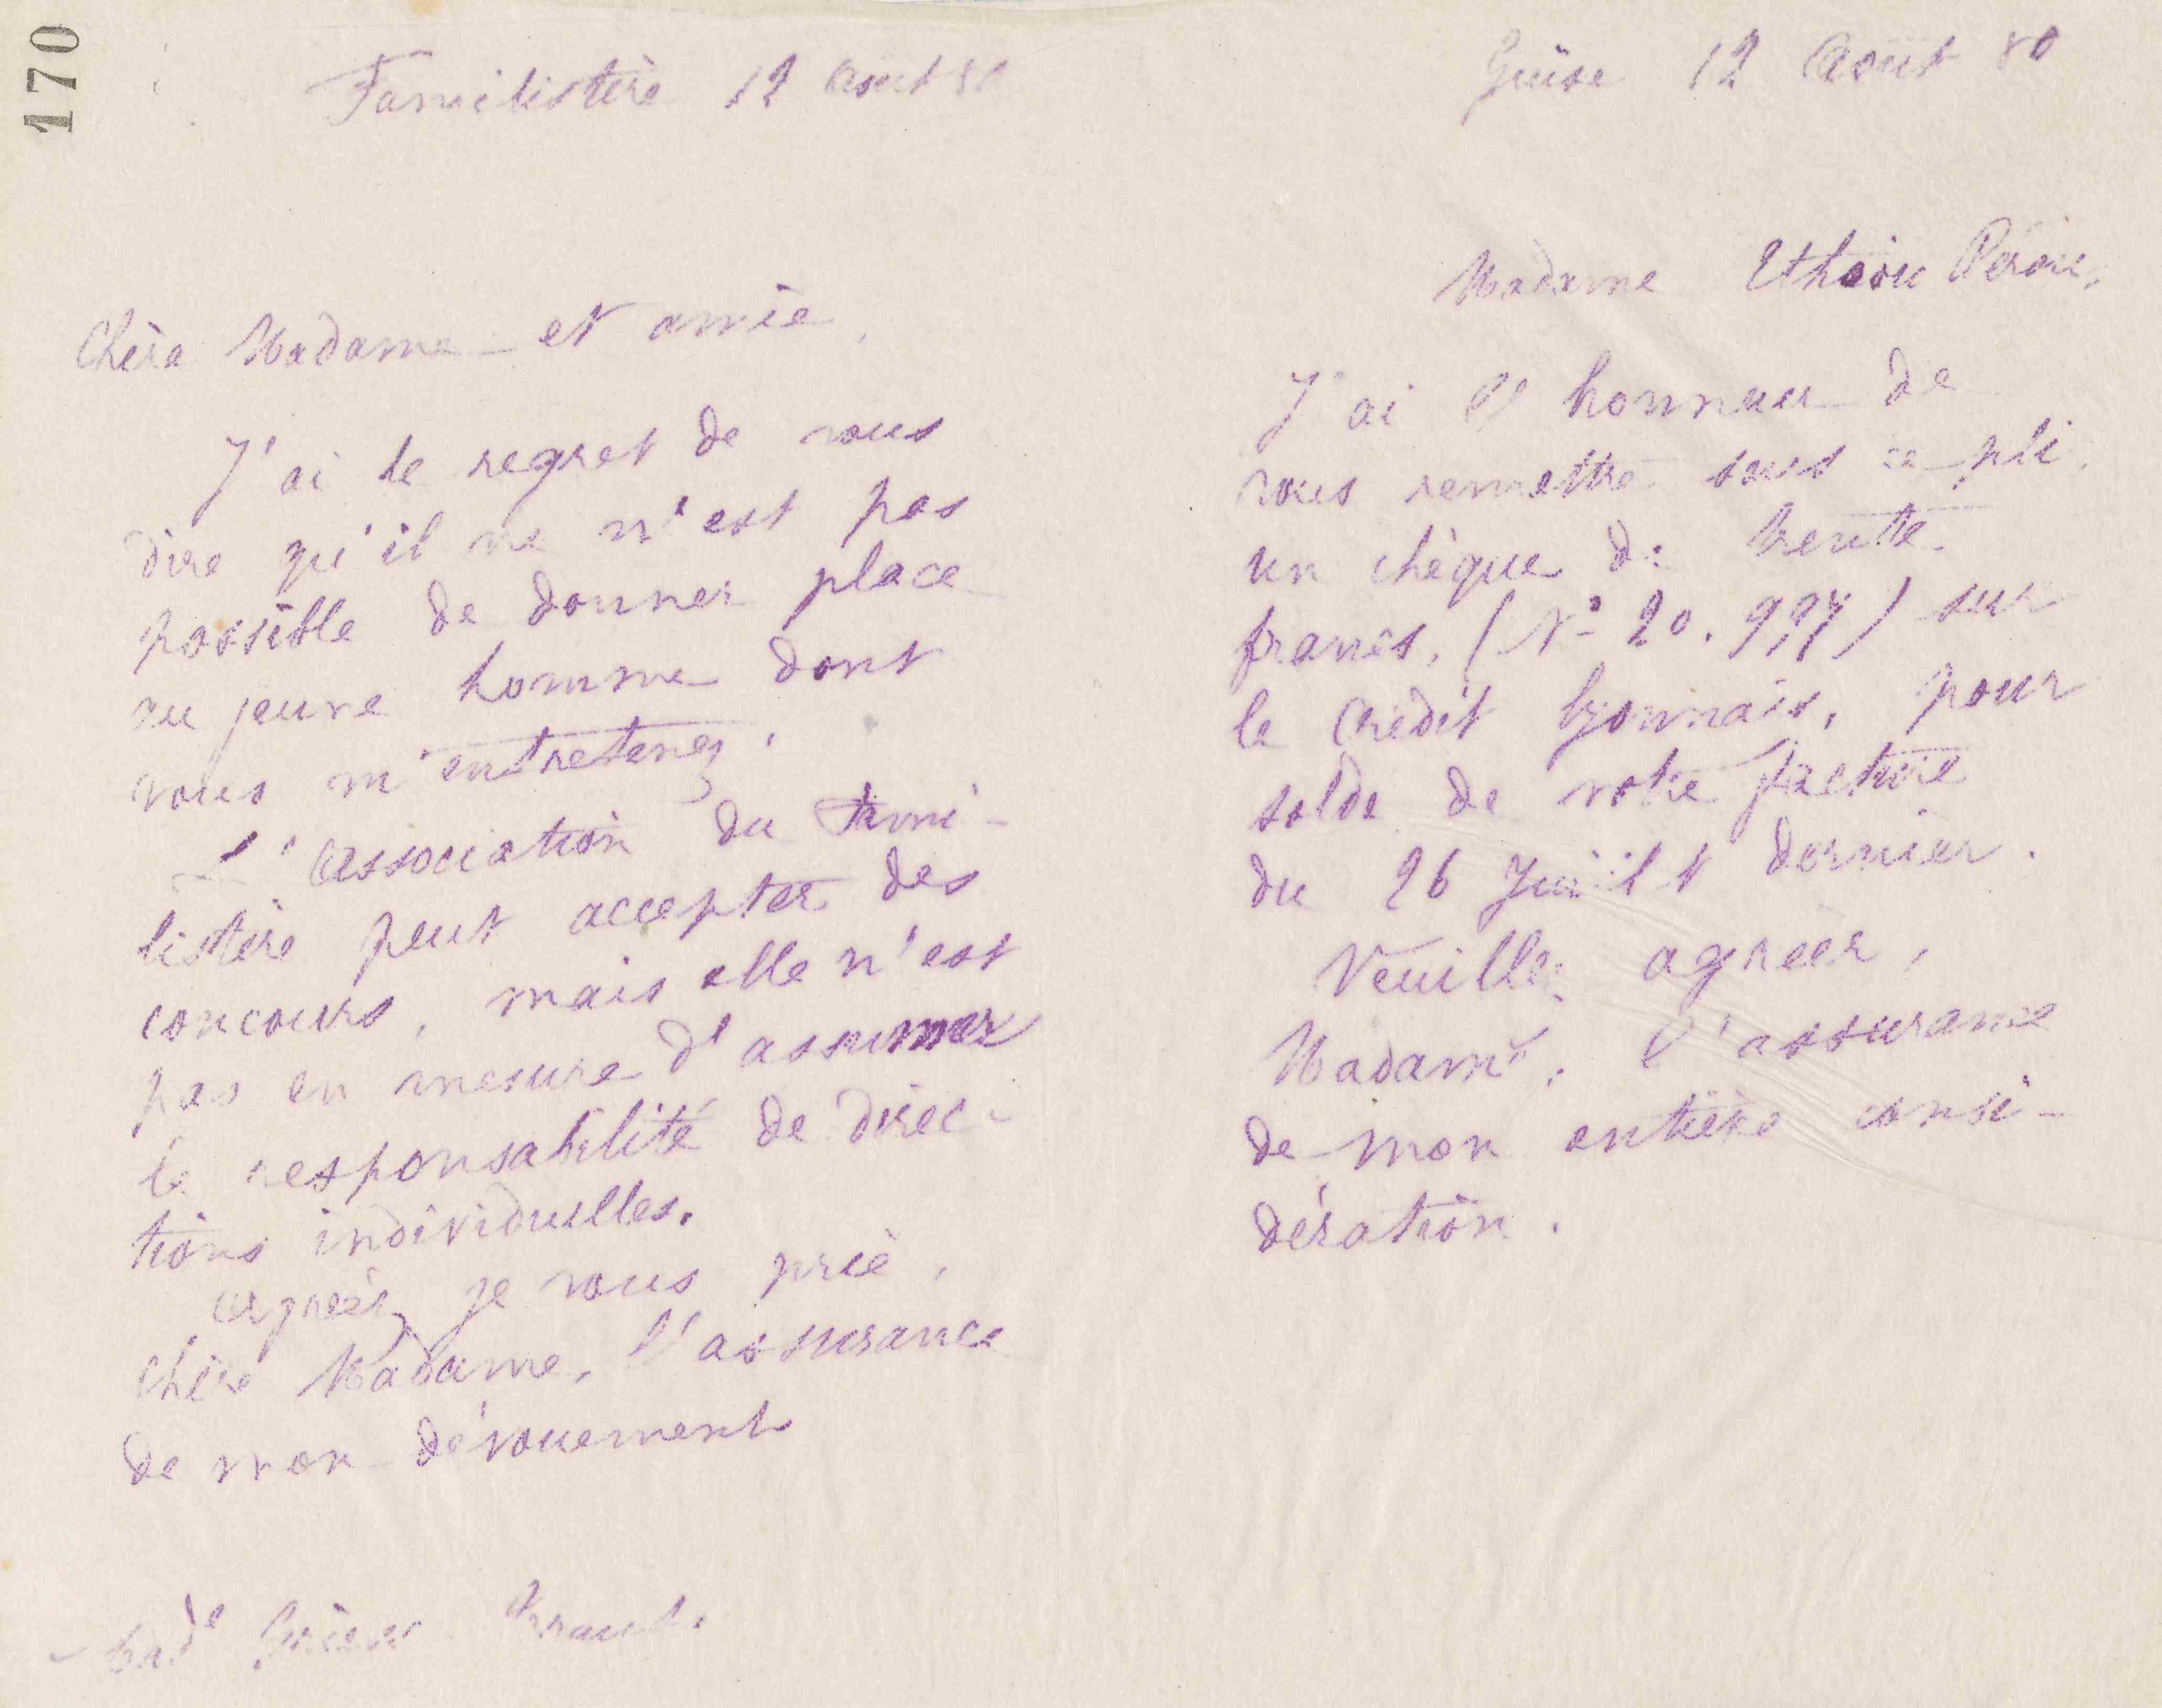 170
Familistère 12 Août 80
Chère Madame et amie,
J'ai le regret de vous
dire qu'il ne m'est pas
possible de donner place
au jeune homme dont
vous m'entretenez.
L'Association du Fami-
listère peut accepter des
concours, mais elle n'est
pas en mesure d'assumer
la responsabilité de direc-
tions individuelles.
Agréez, je vous prie,
Chère Madame, l'assurance
de mon dévouement
Guise 12 Août 80
Madame
J'ai l'honneur de
vous remettre sous ce pli
un chèque de trente
francs, (Nº 20.977) sur
le Crédit lyonnais, pour
solde de votre facture
du 26 Juillt dernier.
Veuillez agréer,
Madame, l'assurance
de mon entière consi-
dération.